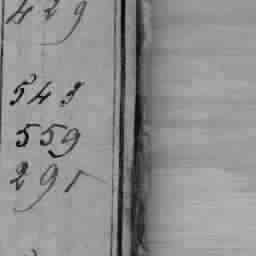 429
543
559
291